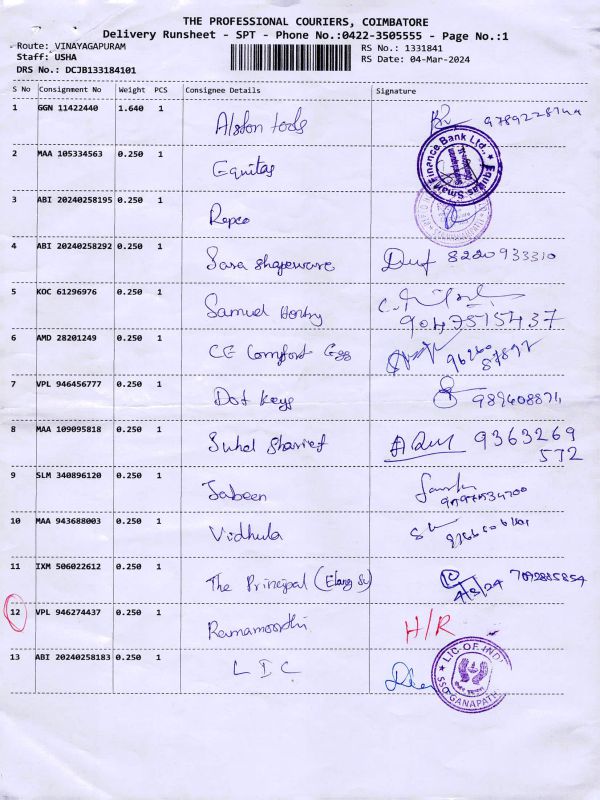 THE PROFESSIONAL COURIERS, COIMBATORE
Delivery Runsheet - SPT - Phone No.:0422-3505555 - Page No.:1
Route: VINAYAGAPURAM RS No.: 1331841
Staff: USHA RS Date: 04-Mar-2024
DRS No.: DCJB133184101
S No Consignment No Weight PCS Consignee Details Signature
1 GGN 11422440 1.640 1 Alston tools
2 MAA 105334563 0.250 1 Equitas
Equitas Small Finance Bank Ltd.,
3 ABI 20240258195 0.250 1 Repco
4 ABI 20240258292 0.250 1 Sara shapeware 8220933310
5 KOC 61296976 0.250 1 Samuel
9047515437
6 AMD 28201249 0.250 1 CG Comfort Egg
7 VPL 946456777 0.250 1 Dot keys
8 MAA 109095818 0.250 1 Suhel Sharief 9363269
572
9 SLM 340896120 0.250 1 Jabeen
10 MAA 943688003 0.250 1 Vidhula
11 IXM 506022612 0.250 1 The Principal 7092885854
4/3/24
12 VPL 946274437 0.250 1 Ramamoorthi H/R
13 ABI 20240258183 0.250 1 LIC
LIC OF INDIA
SSO GANAPATH